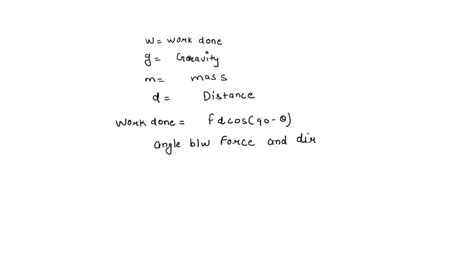 w= work done
g= Gravity
m= mass
d= Distance
Work done= fdcos(90-θ)
angle b/w force and dir